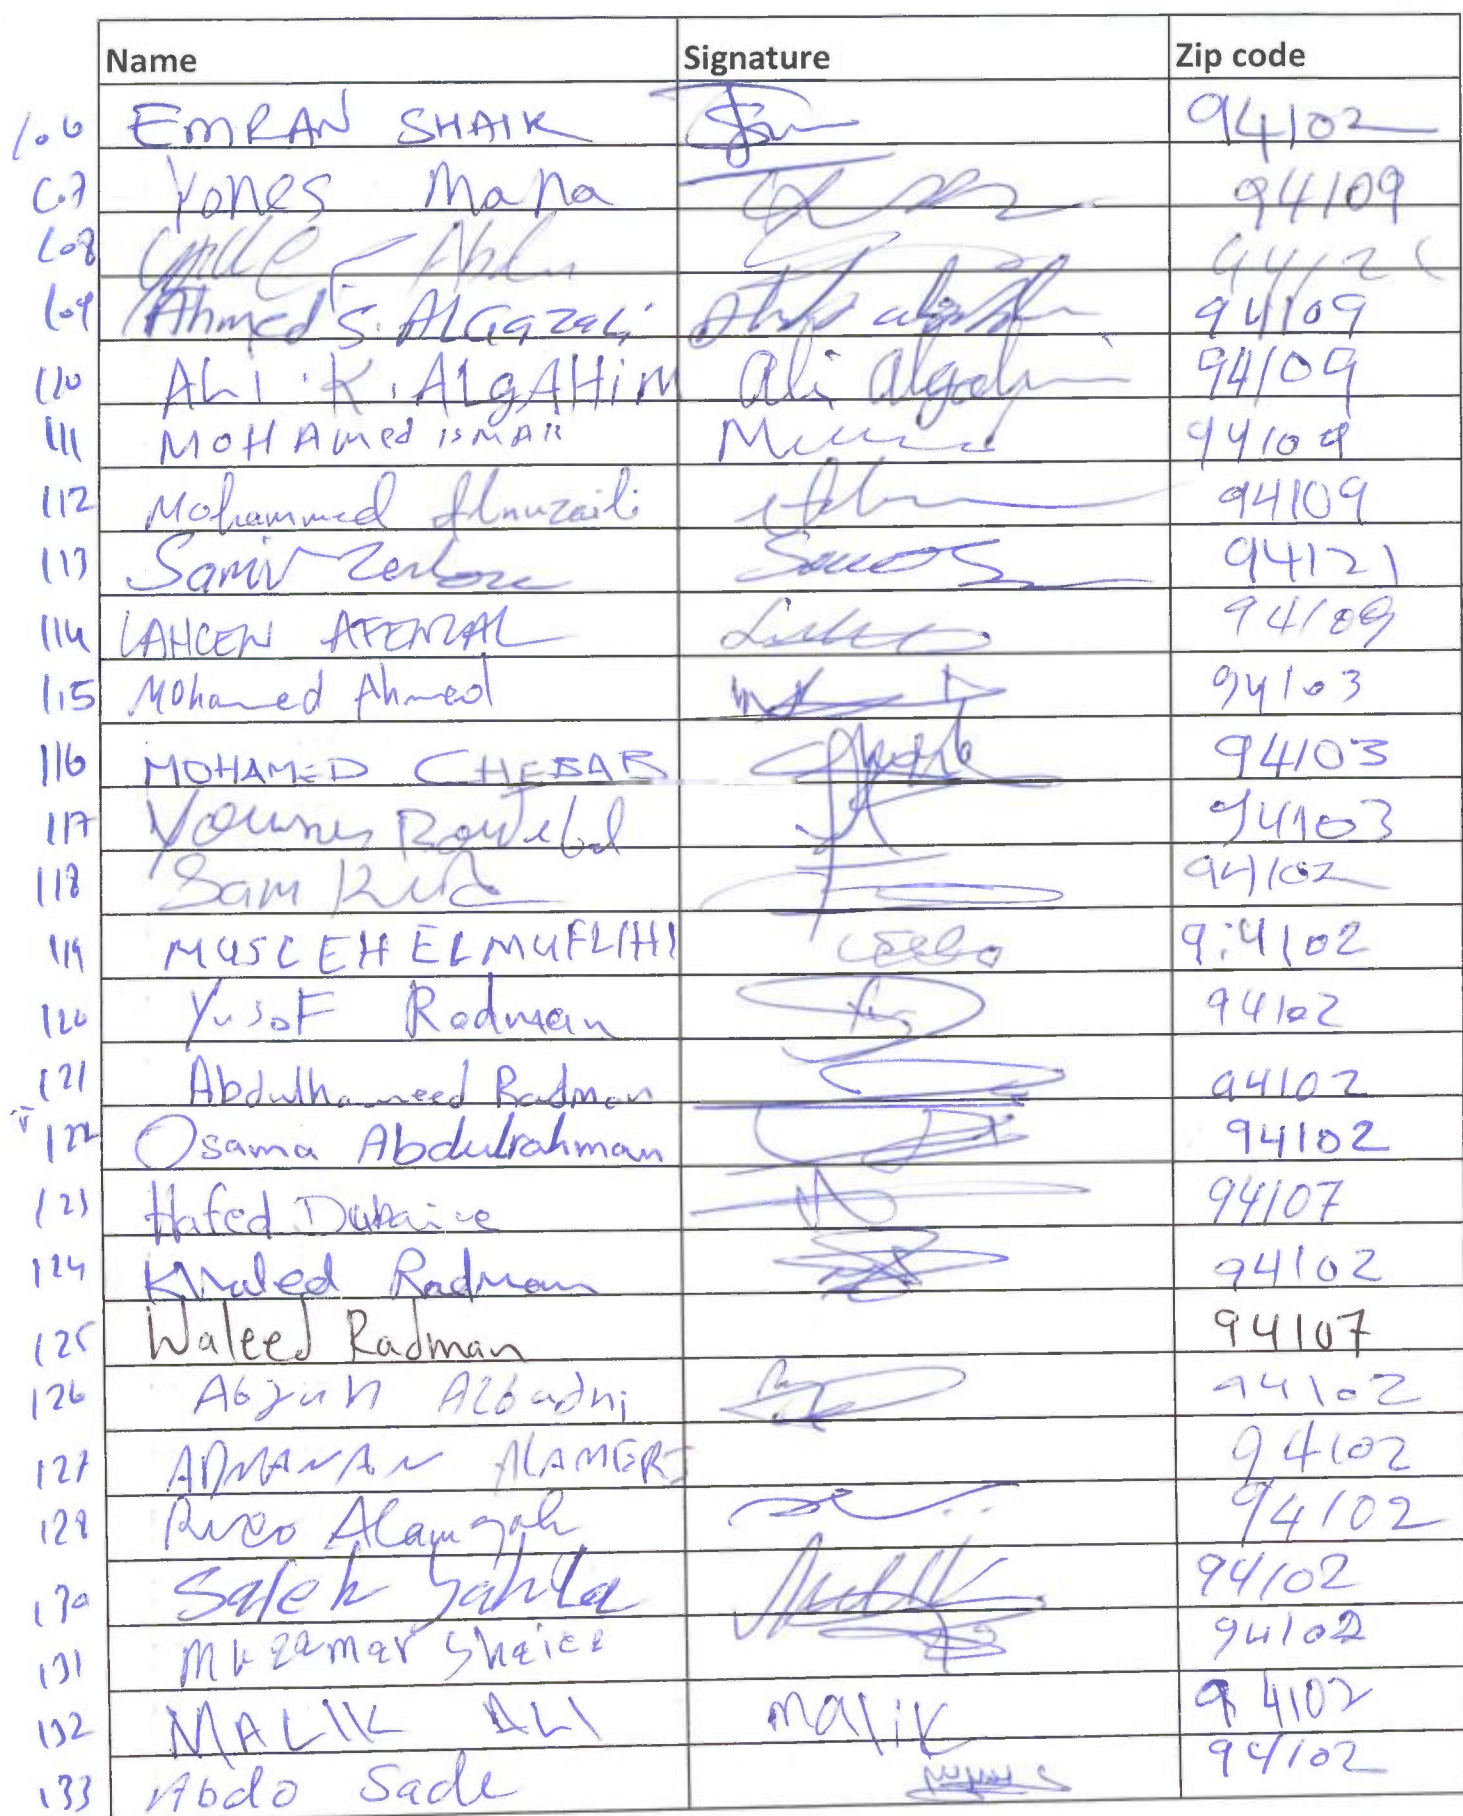 Name Signature Zip code
106 EMRAN SHAIK 94102
107 Yones Mana 94109
108
109 Ahmed S. ALGAzali 94109
110 ALI . K . ALgAHiM ali algahim 94109
111 MOHAmed ismail 94109
112 Mohammed Almuzaili 94109
113 Samir 94121
114 LAHCEN AFENZAL 94109
115 Mohamed Ahmed 94103
116 MOHAMED CHEBAB 94103
117 94103
118 Sam 94102
119 MUSLEH ELMUFLIHI 9.4102
120 YusoF Radman 94102
121 Abdulhameed Radman 94102
122 Osama Abdulrahman 94102
123 Hafed Dubaive 94107
124 Khaled Radman 94102
125 Waleed Radman 94107
126 Albadni 94102
127 ADMANAN ALAMERI 94102
129 Alamgah 94102
130 Saleh Yahta 94102
131 Shaice 94102
132 MALIK ALI MaliK 94102
133 Abdo Sade 94102